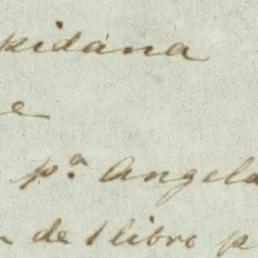 kidána
e
pª Angela
n de 1 libro p